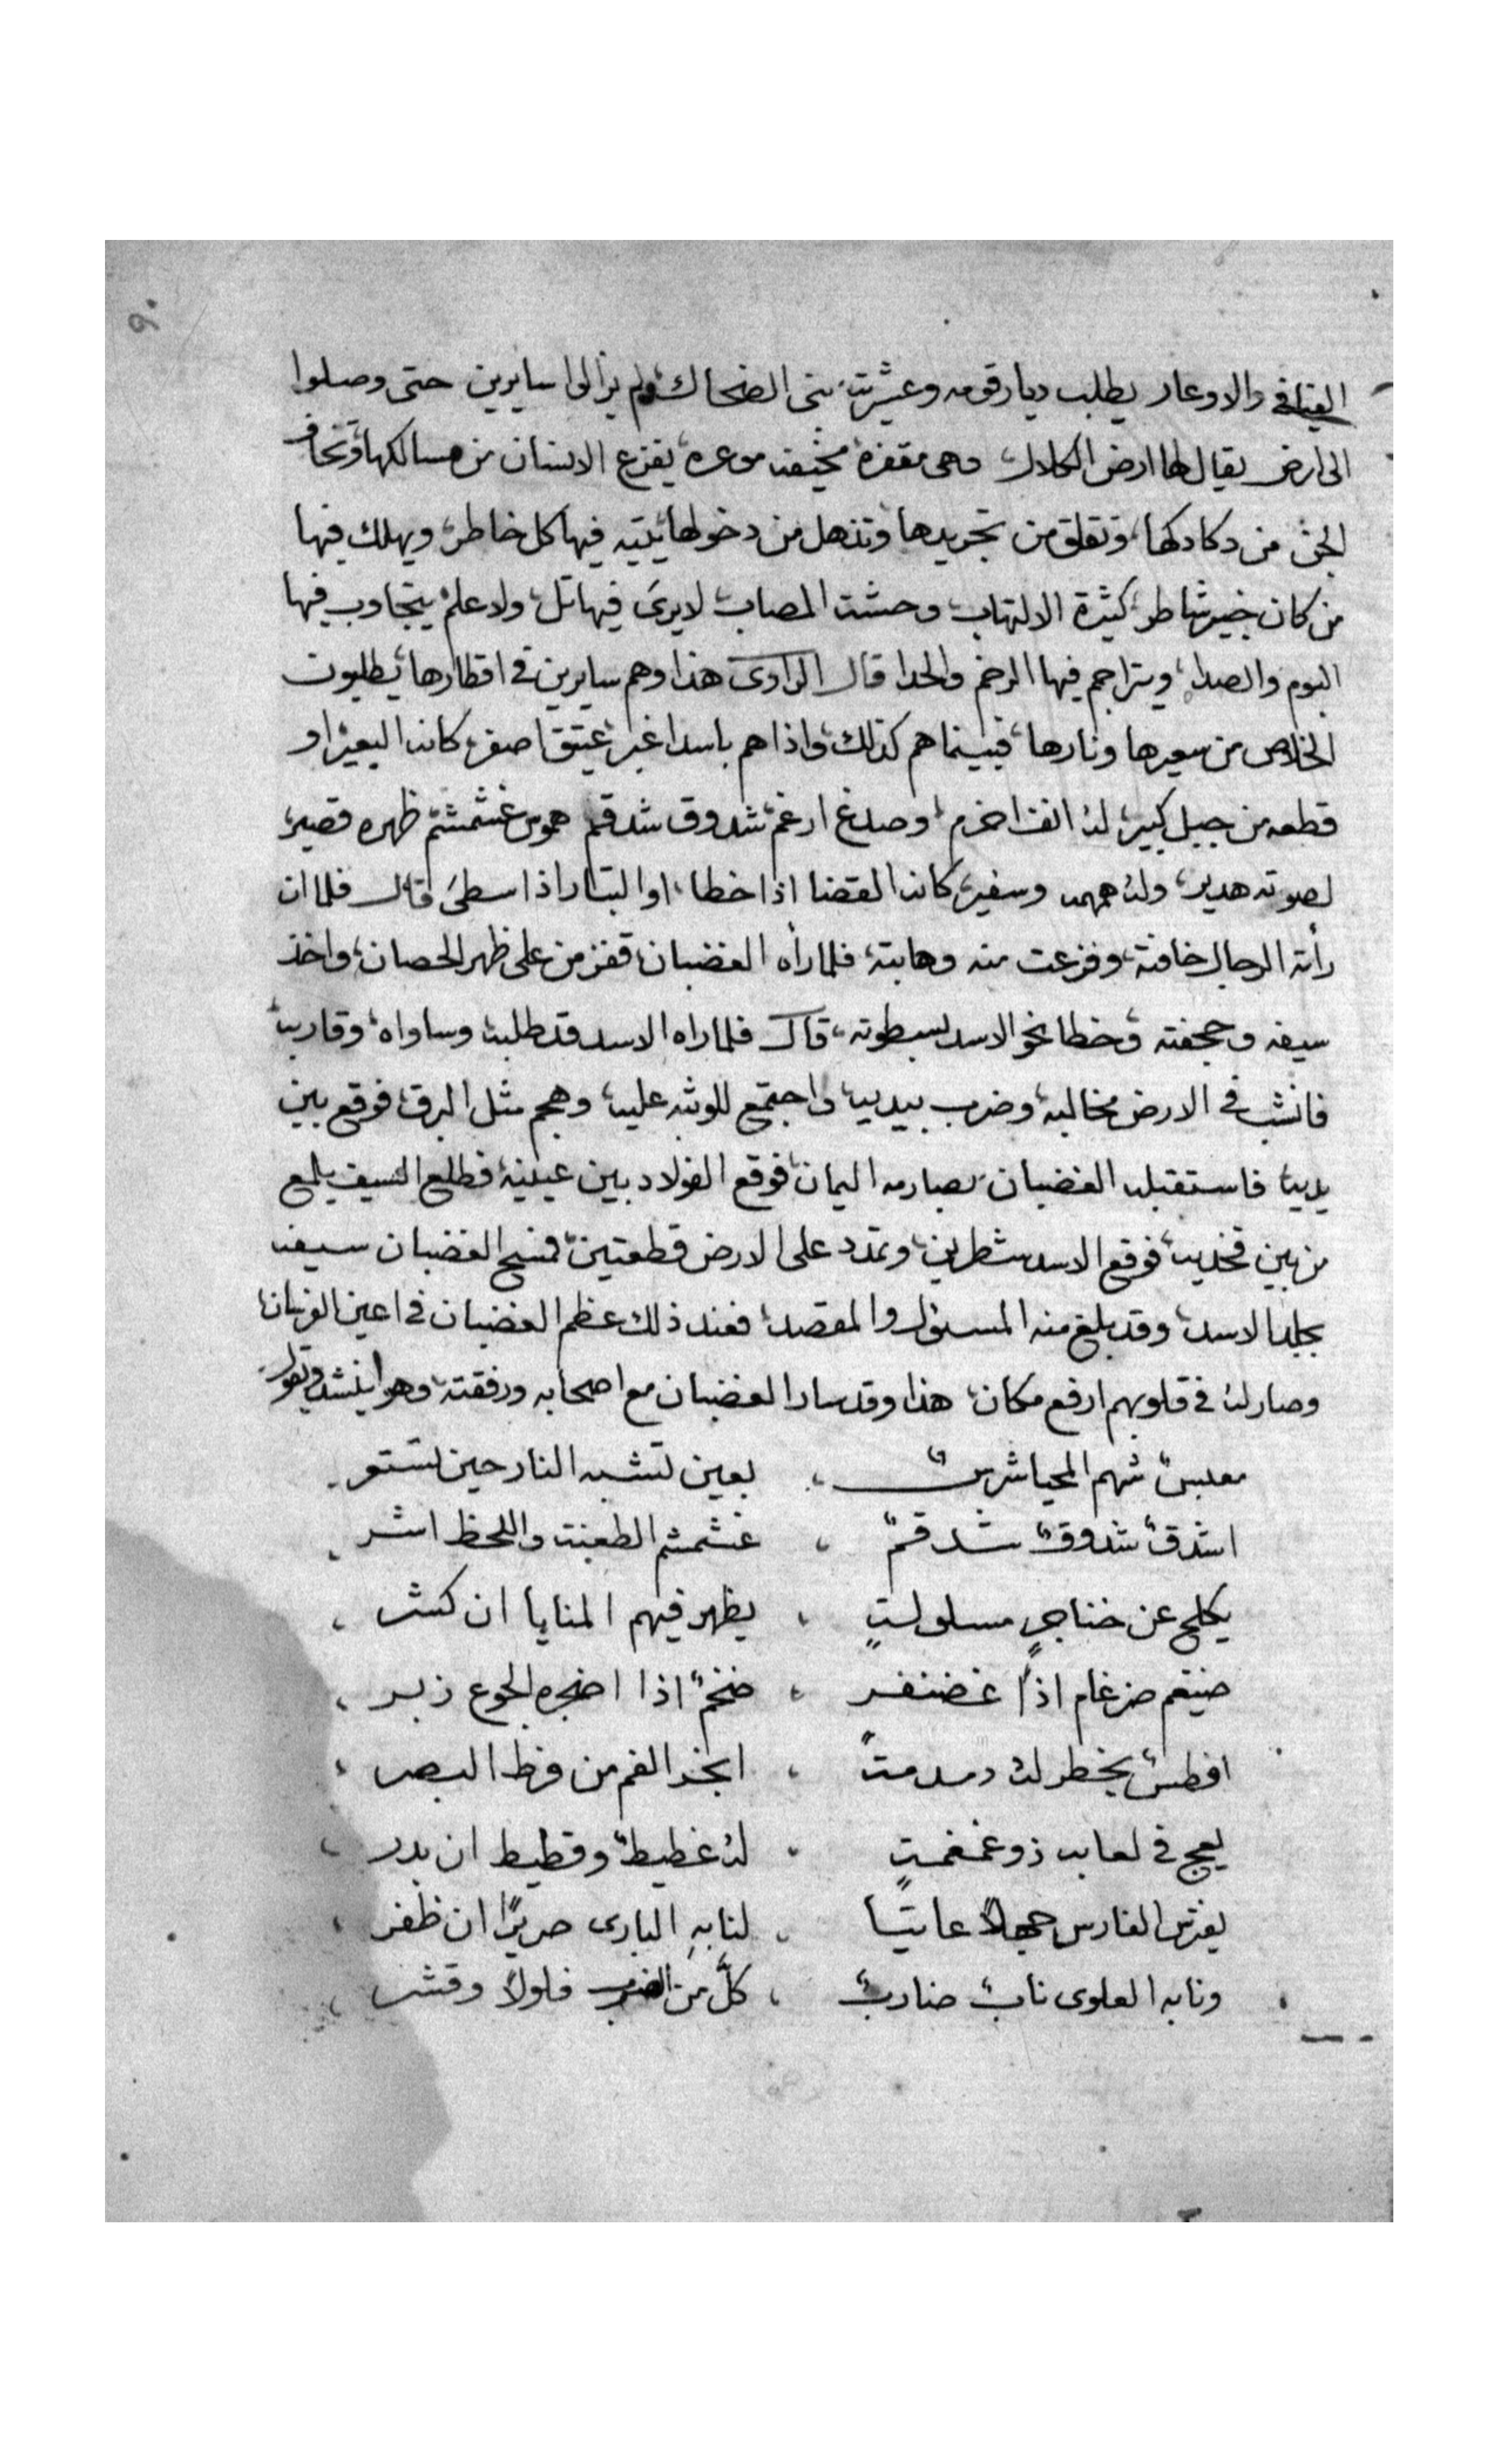 ٩٠
الفيافي والاوعار يطلب ديار قومه وعشيرته بنى الضحاك ولم يزالوا سايرين حتى وصلوا
الى ارض يقال لها ارض الكلاك وهى مقفره مخيفه موعره يفزع الانسان من مسالكها وتخاف
الجن من دكادكها وتقلق من تجريدها وتذهل من دخولها يتيه فيها كل خاطر ويهلك فيها
من كان خبير شاطر كثيرة الالتهاب وحشت المصاب لا يرى فيها تل ولا علم يتجاوب فيها
البوم والصدا ويتراجم فيها الرخم والحدا قال الراوى هذا وهم سايرين في اقطارها يطلبون
الخلاص من سعيرها ونارها فبينما هم كذلك واذا هم باسد اغبر عتيق اصفر كانه البعير او
قطعه من جبل كبير له انف اخرم وصدغ ارغم شدوق شدقم هموس غشمشم ظهره قصير
لصوته هدير وله همهمه وسفير كانه القضا اذا خطا او البتار اذا سطى قال فلما ان
رأته الرجال خافته وفزعت منه وهابته فلما رأه الغضبان قفز من على ظهر الحصان واخذ
سيفه وحجفته وخطا نحو الاسد لسطوته قال فلما راه الاسد قد طلبه وساواه وقاربه
فانشب في الارض مخالبه وضرب بيديه واجتمع للوثبه عليه وهجم مثل البرق فوقع بين
يديه فاستقبله الغضبان بصارمه اليمان فوقع الفولاد بين عينيه فطلع السيف يلمع
من بين فخديه فوقع الاسد شطرين وتمدد على الارض قطعتين فمسح الغضبان سيفه
بجلد الاسد وقد بلغ منه المسؤل والمقصد فعند ذلك عظم الغضبان في اعين الفرسان
وصار له في قلوبهم ارفع مكان هذا وقد سار الغضبان مع اصحابه ورفقته وهو اينشد ويقول
معبس شهم المحيا شرس بعين تشبه النار حين تستعر
اشدق شدوق شدقم غشمشم الطعنت واللحظ اشر
يكلح عن خناجرٍ مسلولتٍ يظهر فيهم المنايا ان كشر
ضيغم ضرغام اذا غضنفر ضخم اذا اضجره الجوع زبر
افطس يخطر له دمدمت ابخر الفم من فرط البصر
يعج في لعابه ذو غمغمتٍ له غطيط وقطيط ان بدر
يفترس الفارس جهلاً عاتيا لنابه البارى صريرًا ان ظفر
ونابه العلوى ناب ضارب كلّ من الضرب فلولا وقشر